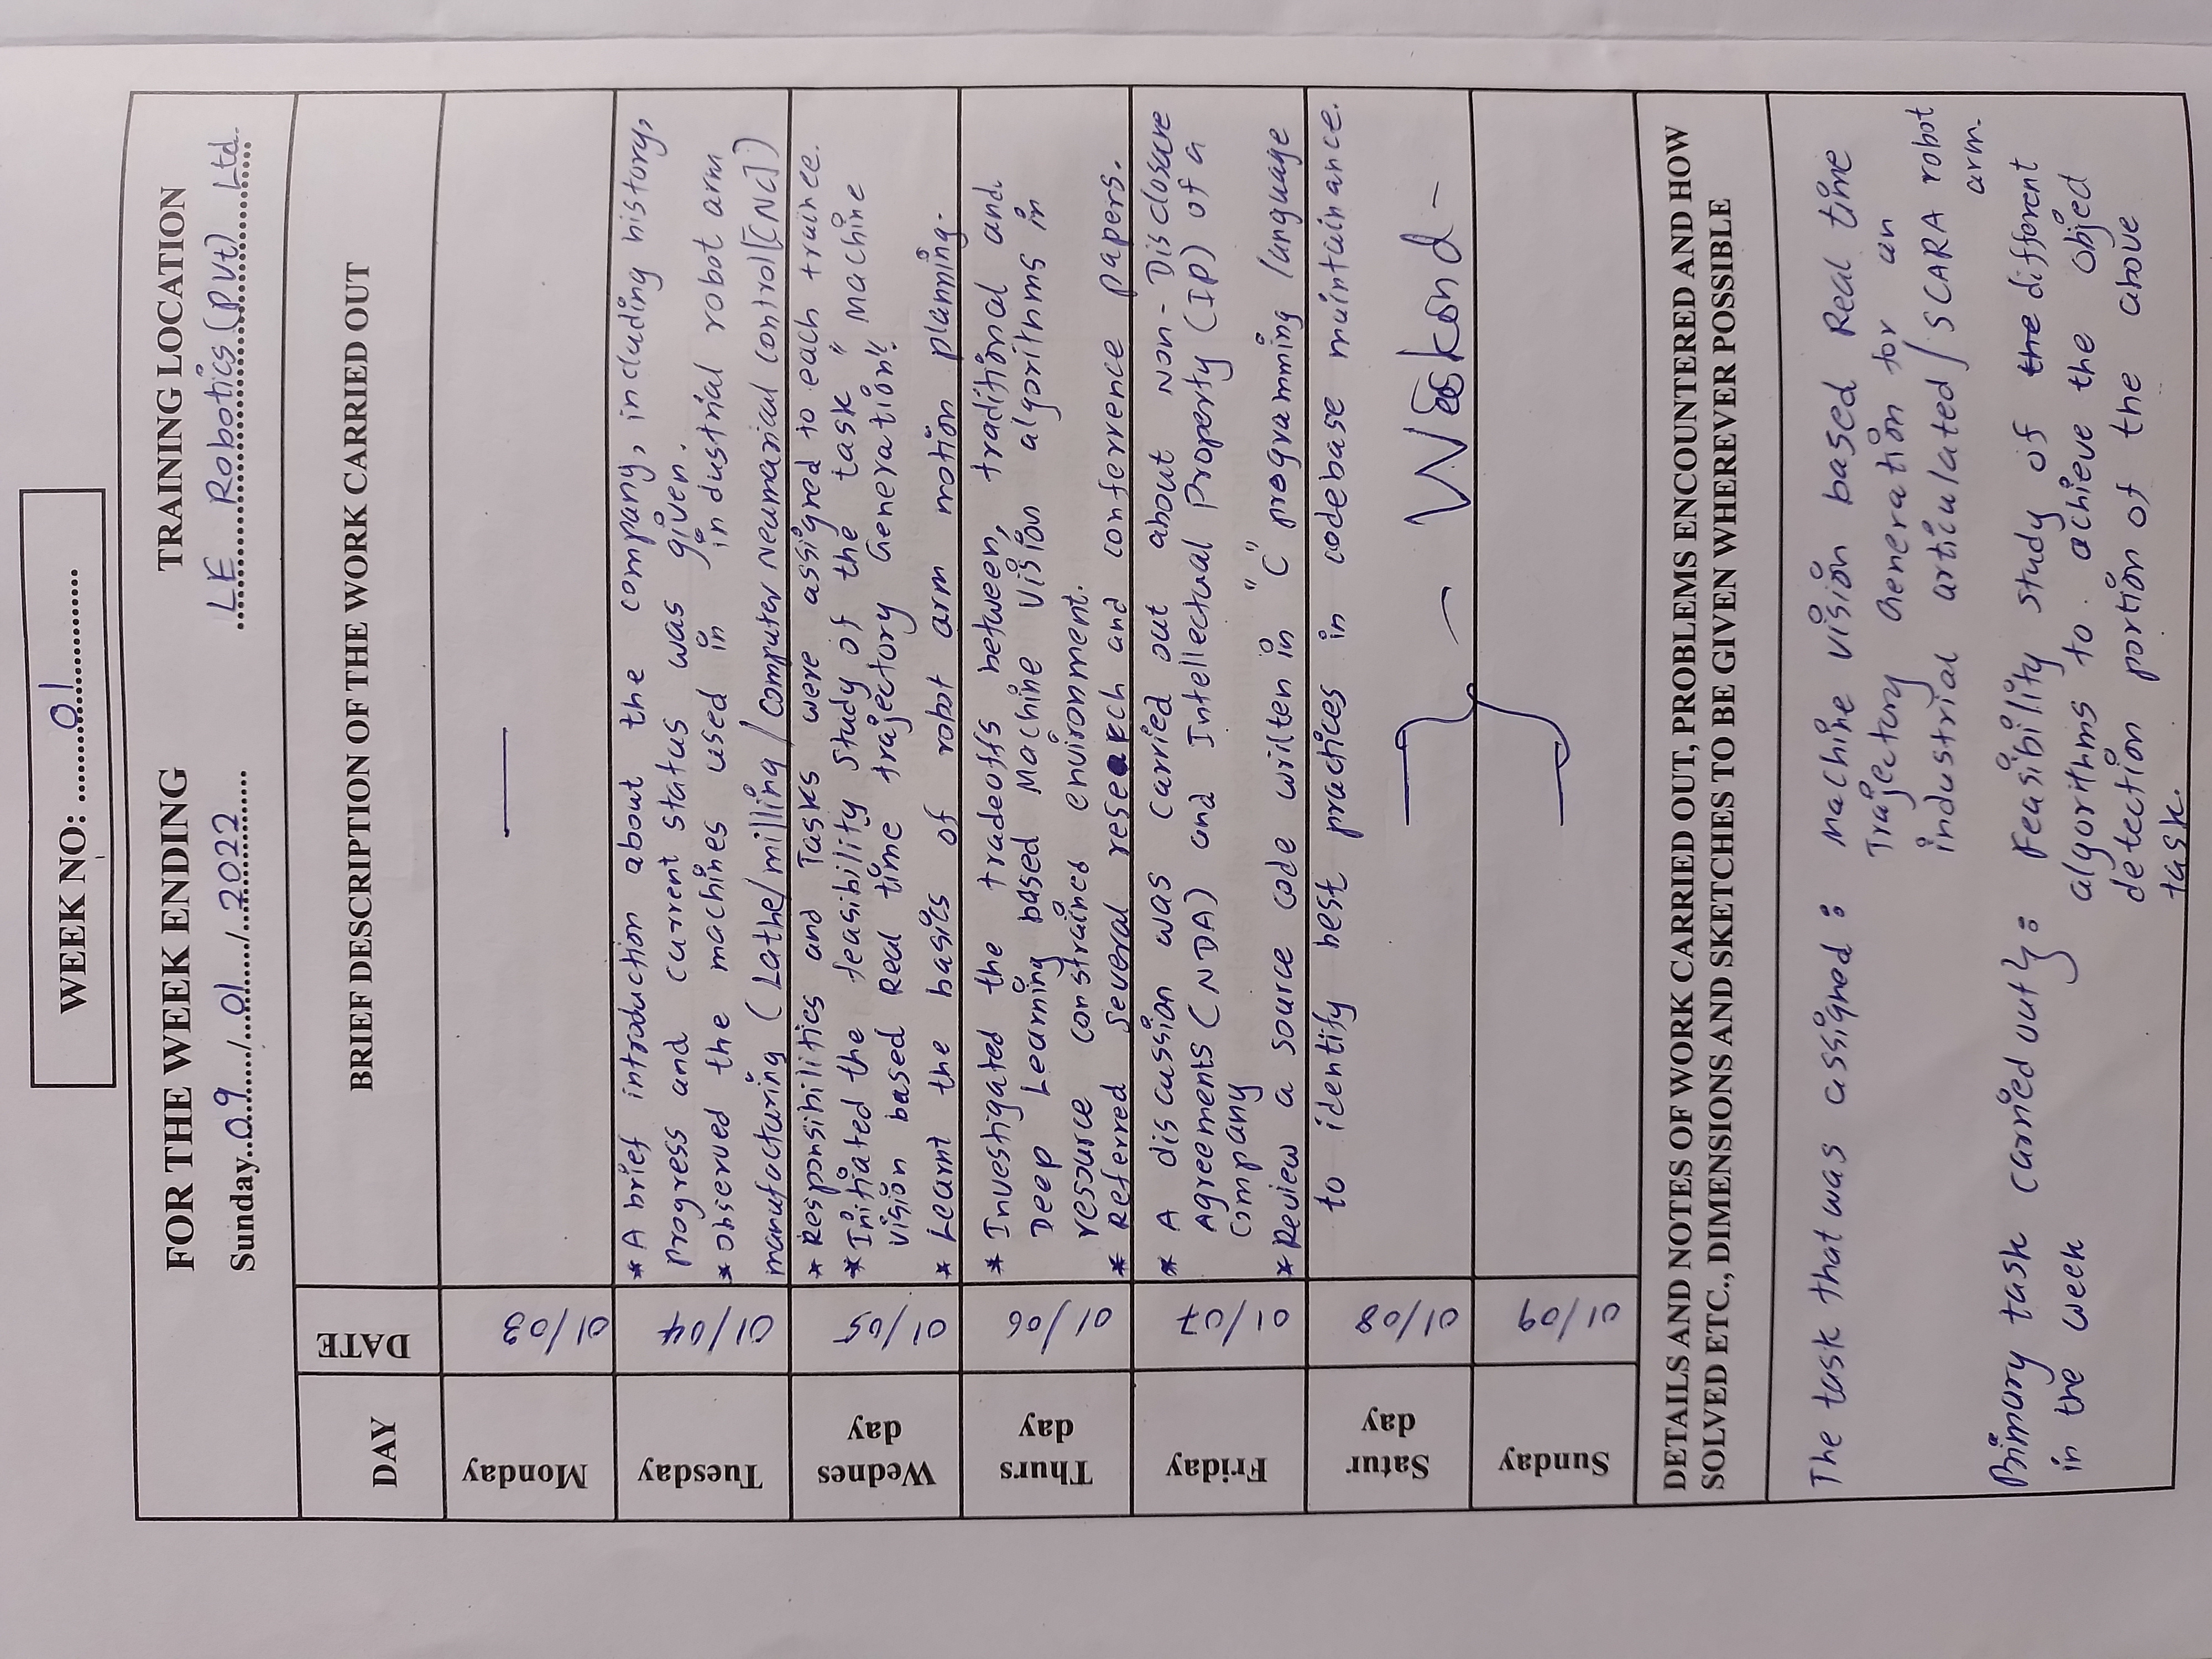 WEEK NO: ........01............
FOR THE WEEK ENDING
TRAINING LOCATION
Sunday..09../..01../..2022....
LE Robotics (Pvt) Ltd.
DAY
DATE
BRIEF DESCRIPTION OF THE WORK CARRIED OUT
Monday
01/03
—
Tuesday
01/04
* A brief introduction about the company, including history,
progress and current status was given.
* Observed the machines used in industrial robot arm
manufacturing (Lathe/milling/computer Neumarical control[CNC])
Wednes
day
01/05
* Responsibilities and Tasks were assigned to each trainee.
* Initiated the feasibility Study of the task "Machine
vision based Real time trajectory Generation".
* Learnt the basics of robot arm motion planning.
Thurs
day
01/06
* Investigated the tradeoffs between, traditional and
Deep Learning based Machine Vision algorithms in
resource constrained environment.
* Referred several research and conferrence papers.
Friday
01/07
* A discussion was carried out about Non-Disclosure
Agreements (NDA) and Intellectual Property (IP) of a
company
* Review a source code written in "C" programming language
to identify best practices in codebase maintainance.
Satur
day
01/08
— Weekend -
Sunday
01/09
DETAILS AND NOTES OF WORK CARRIED OUT, PROBLEMS ENCOUNTERED AND HOW
SOLVED ETC., DIMENSIONS AND SKETCHES TO BE GIVEN WHEREVER POSSIBLE
The task that was assigned : Machine vision based Real time
Trajectory Generation for an
industrial articulated / SCARA robot
arm.
Primary task carried out} : Feasibility study of the different
in the week
algorithms to achieve the object
detection portion of the above
task.